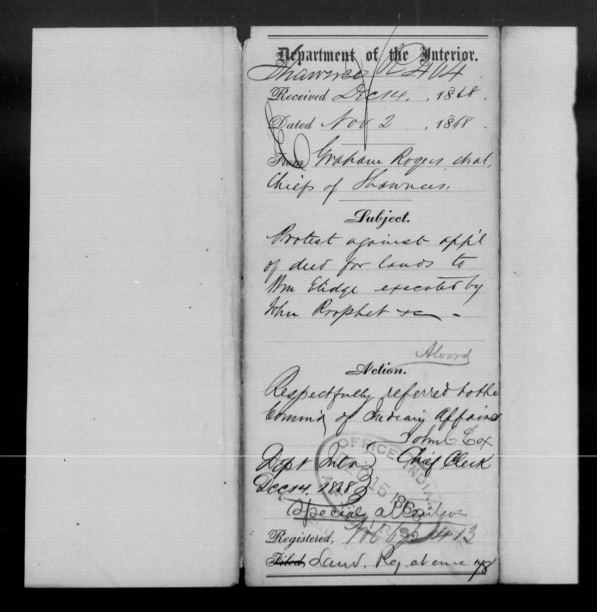 Department of the Interior.
Shawnee R 404
Received Dec 14, 1868.
Dated Nov 2, 1868.
From Graham Rogers & al,
Chiefs of Shawnees.
Subject.
Protest against app'l
of deed for lands to
Wm executed by
John Prophet &c -
Alvord
Action.
Respectfully referred to the
Commr of Indian Affairs
John C Cox
Chief Clerk
Dept Intr
Dec 14, 1868
OFFICE INDIAN
15 1868
Special
Registered,
Filed, Land. Reg at once